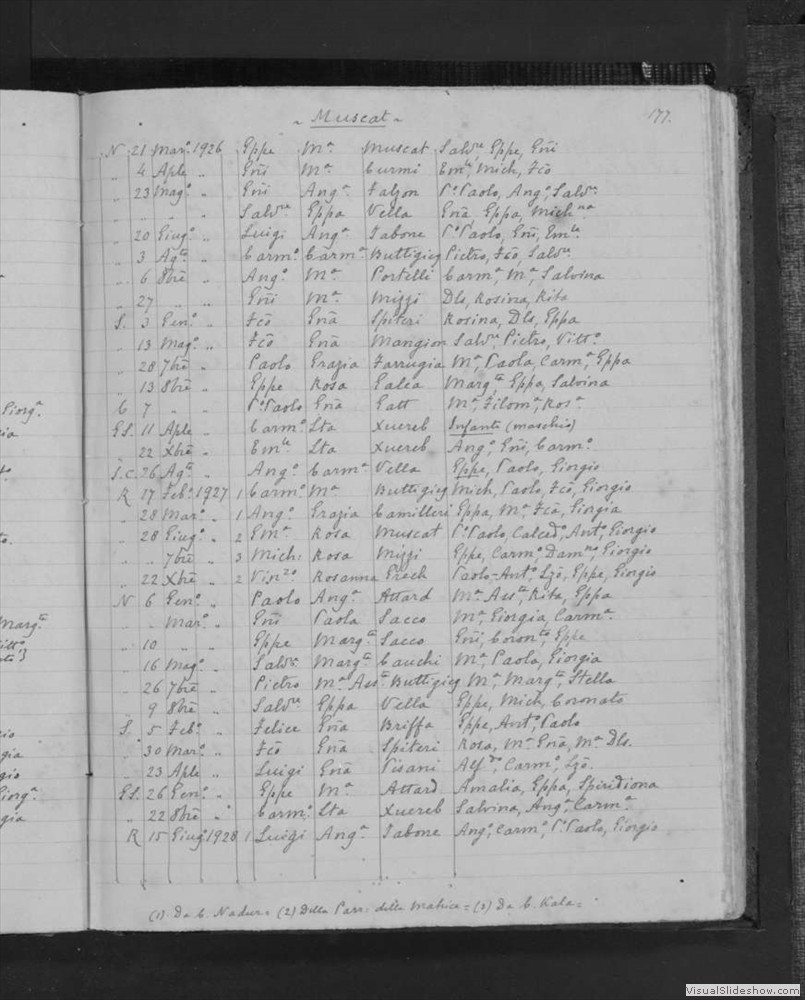 ~ Muscat ~ 177.
N 21 Mar.º 1926 Eppe Mª Muscat Salv.re Eppe, Gñi
„ 4 Aple „ Gñi Mª Curmi Em.le, Mich, Fcõ
„ 23 Mag.º „ Gñi Ang.ª Falzon P.º Paolo, Ang.º, Salv.re
„ „ „ Salv.re Eppa Vella Gña, Eppa, Mich.na
„ 20 Giug.º „ Luigi Ang.ª Tabone P.º Paolo, Gñi, Em.le
„ 3 Ag.to „ Carm.º Carm.ª Buttigieg Pietro, Fcõ, Salv.re
„ 6 8bre „ Ang.º Mª Portelli Carm.ª, Mª, Salvina
„ 27 „ „ Gñi Mª Mizzi Dls, Rosina, Rita
S. 3 Gen.º „ Fcõ Gña Spiteri Rosina, Dls, Eppa
„ 13 Mag.º „ Fcõ Gña Mangion Salv.re, Pietro, Vitt.º
„ 28 7bre „ Paolo Grazia Farrugia Mª, Paola, Carm.ª, Eppa
„ 13 8bre „ Eppe Rosa Galea Marg.ta, Eppa, Salvina
C 7 „ „ P.º Paolo Gña Gatt Mª, Filom.ª, Ros.ª
GS. 11 Aple „ Carm.º Sta Xuereb Infante (maschio)
„ 22 Xbre „ Em.le Sta Xuereb Ang.º, Gñi, Carm.º
S.C. 26 Ag.to „ Ang.º Carm.ª Vella Eppe, Paolo, Giorgio
R 17 Feb.º 1927 1 Carm.º Mª Buttigieg Mich, Paolo, Fcõ, Giorgio
„ 28 Mar.º „ 1 Ang.º Grazia Camilleri Eppa, Mª, Fcã, Giorgia
„ 28 Giug.º „ 2 Em.ª Rosa Muscat P.º Paolo, Calced.º, Ant.º, Giorgio
„ „ 7bre „ 3 Mich: Rosa Mizzi Eppe, Carm.º Dam.no, Giorgio
„ 22 Xbre „ 2 Vin.zo Rosanna Grech Paolo-Ant.º, Lzõ, Eppe, Giorgio
N 6 Gen.º „ Paolo Ang.ª Attard Mª Ass.ta, Rita, Eppa
„ „ Mar.º „ Gñi Paola Sacco Mª, Giorgia, Carm.ª
„ 10 „ „ Eppe Marg.ta Sacco Gñi, Coron.to, Eppe
„ 16 Mag.º „ Salv.re Marg.ta Cauchi Mª, Paola, Giorgia
„ 26 7bre „ Pietro Mª Ass.ta Buttigieg Mª, Marg.ta, Stella
„ 9 8bre „ Salv.re Eppa Vella Eppe, Mich, Coronato
S. 5 Feb.º „ Felice Gña Briffa Eppe, Ant.º, Paolo
„ 30 Mar.º „ Fcõ Gña Spiteri Rosa, Mª Gña, Mª Dls.
„ 23 Aple „ Luigi Gña Pisani Alf.do, Carm.º, Lzõ.
GS. 26 Gen.º „ Eppe Mª Attard Amalia, Eppa, Spiridiona
„ 22 8bre „ Carm.º Sta Xuereb Salvina, Ang.ª, Carm.ª
R 15 Giug.º 1928 1 Luigi Ang.ª Tabone Ang.º, Carm.º, P.º Paolo, Giorgio
(1) Da C. Nadur = (2) Della Parr: della Matrice = (3) Da C. Kala =
VisualSlideshow.com